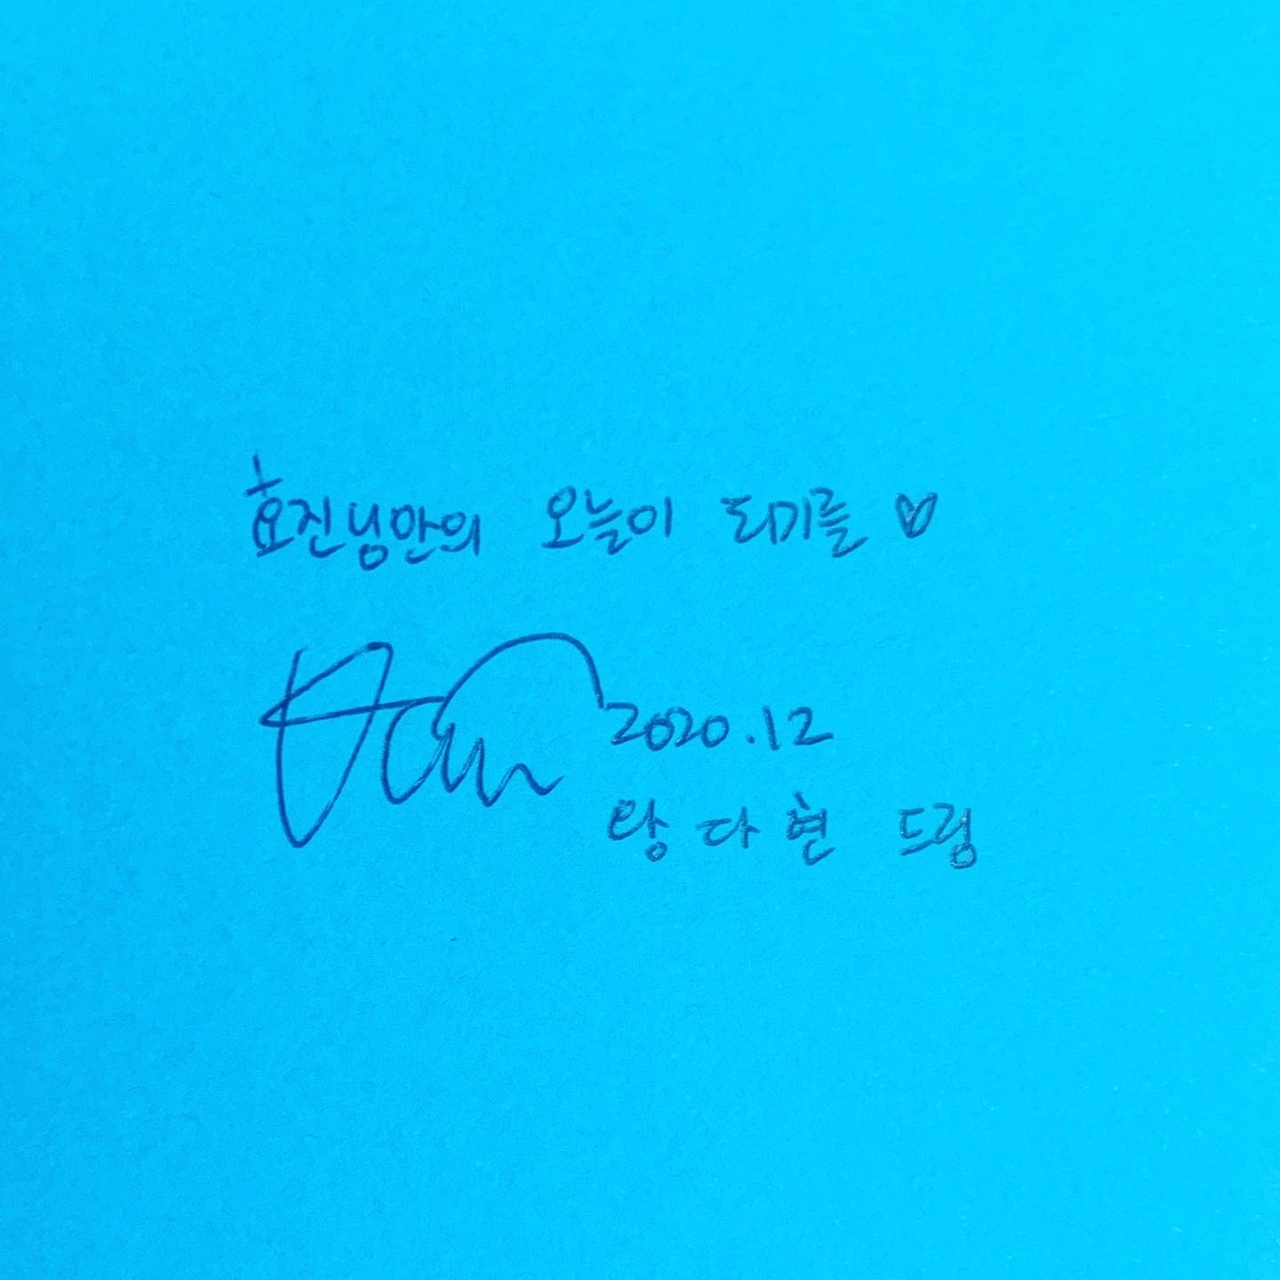 효진님만의 오늘이 되기를 ♡
2020.12
양다현 드림